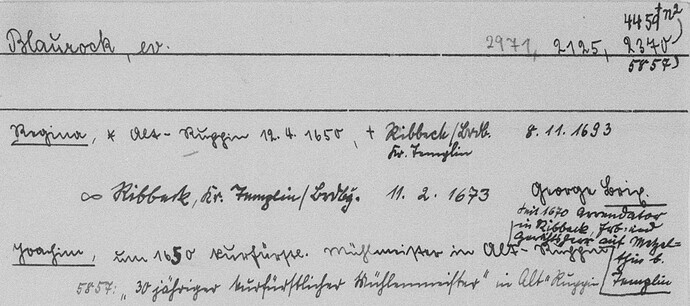 4459 † n²)
Blaurock, ev. 2971, 2125, 2370)
5857)
Regina, * Alt-Ruppin 12.4.1650, + Ribbeck/Brdb. 8.11.1693
Kr. Templin
∞ Ribbeck, Kr. Templin/Brdbg. 11.2.1673 George
seit 1670 Arrendator
in Ribbeck, und
Gerichtsherr auf
Joachim, um 1650 kurfürstl. Mühlmeister in Alt-Ruppin b.
5857: „30 jähriger kurfürstlicher Mühlenmeister" in Alt-Ruppin Templin